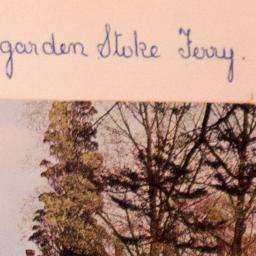 garden Stoke Ferry.